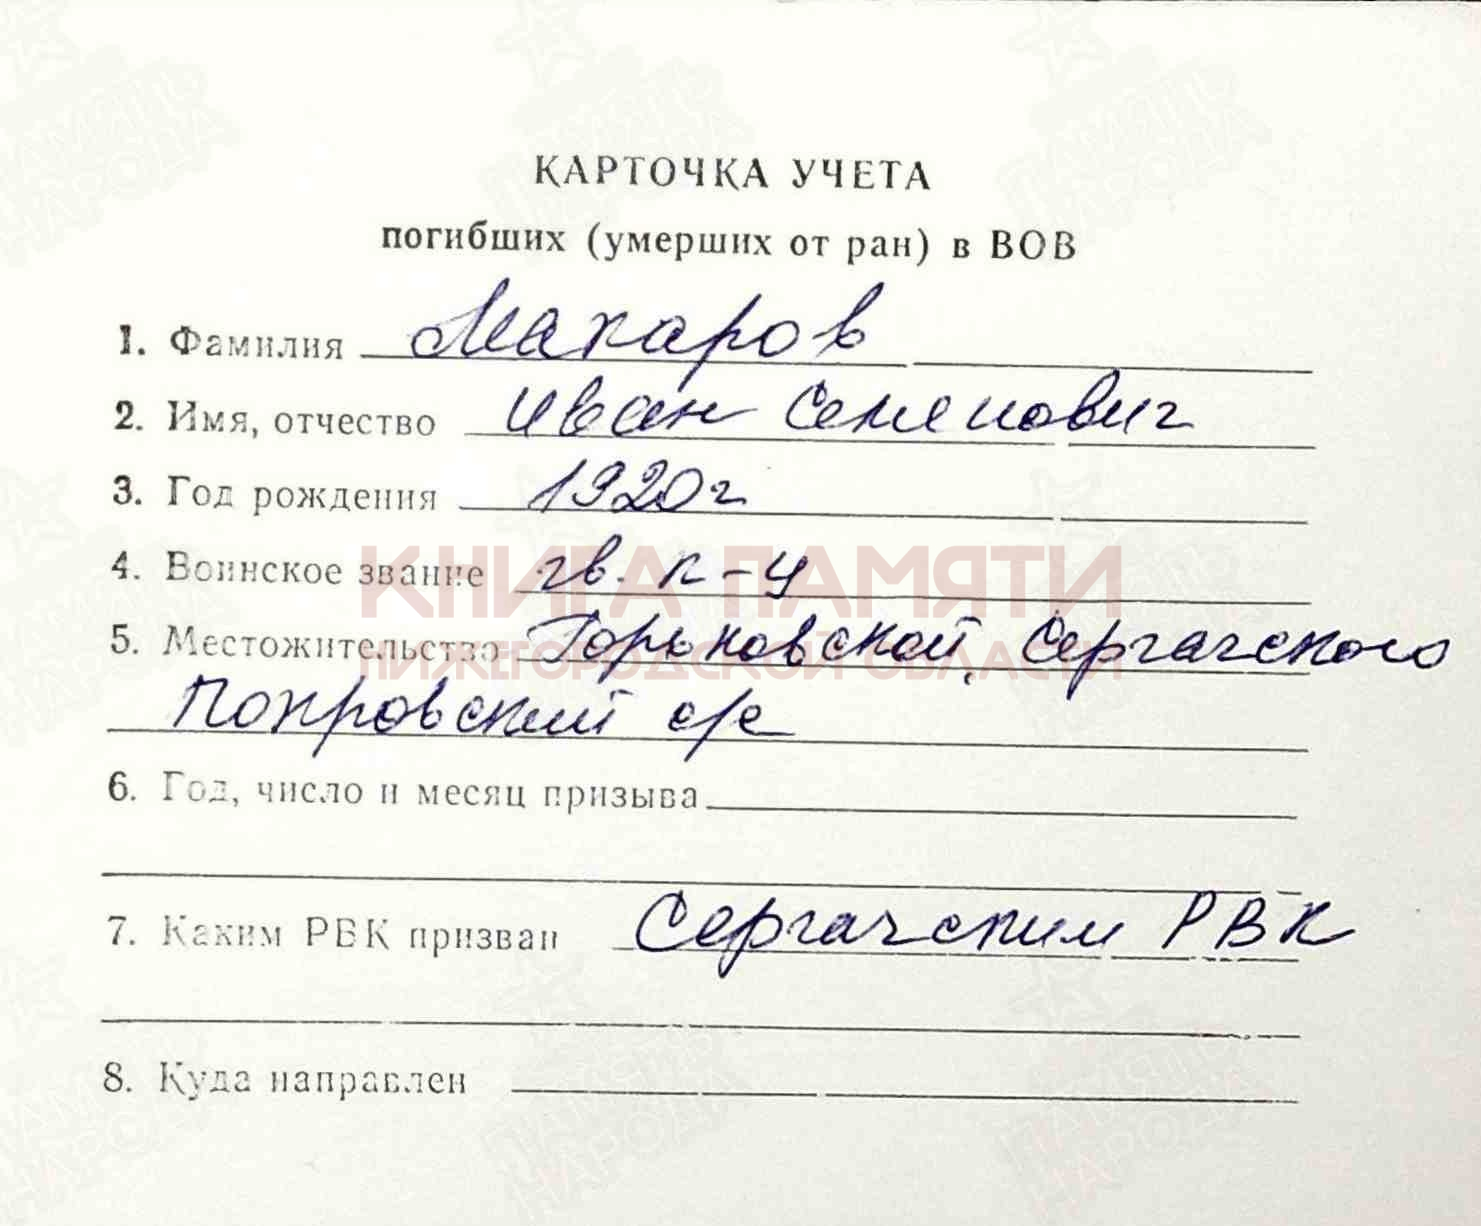 КАРТОЧКА УЧЕТА
погибших (умерших от ран) в ВОВ
1. Фамилия Макаров
2. Имя, отчество Иван Семенович
3. Год рождения 1920г
4. Воинское звание гв. к-ц
КНИГА ПАМЯТИ
5. Местожительство Горьковской, Сергачского
НИЖЕГОРОДСКОЙ ОБЛАСТИ
Покровский с/с
6. Год, число и месяц призыва
7. Каким РВК призван Сергачским РВК
8. Куда направлен
ПАМЯТЬ НАРОДА